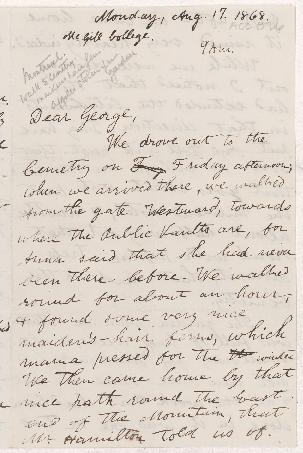 Monday, Aug. 17. 1868.
McGill College.
9 A.M.
Montreal.
Dear George,
We drove out to the
Cemetry on Friday afternoon,
when we arrived there, we walked
from the gate Westward, towards
where the Public Vaults are, for
Anna said that she had never
been there before. We walked
round for about an hour,
& found some very nice
maiden's-hair ferns, which
mama pressed for the winter
We then came home by that
nice path round the East
end of the Mountain, that
Mr Hamilton told us of.